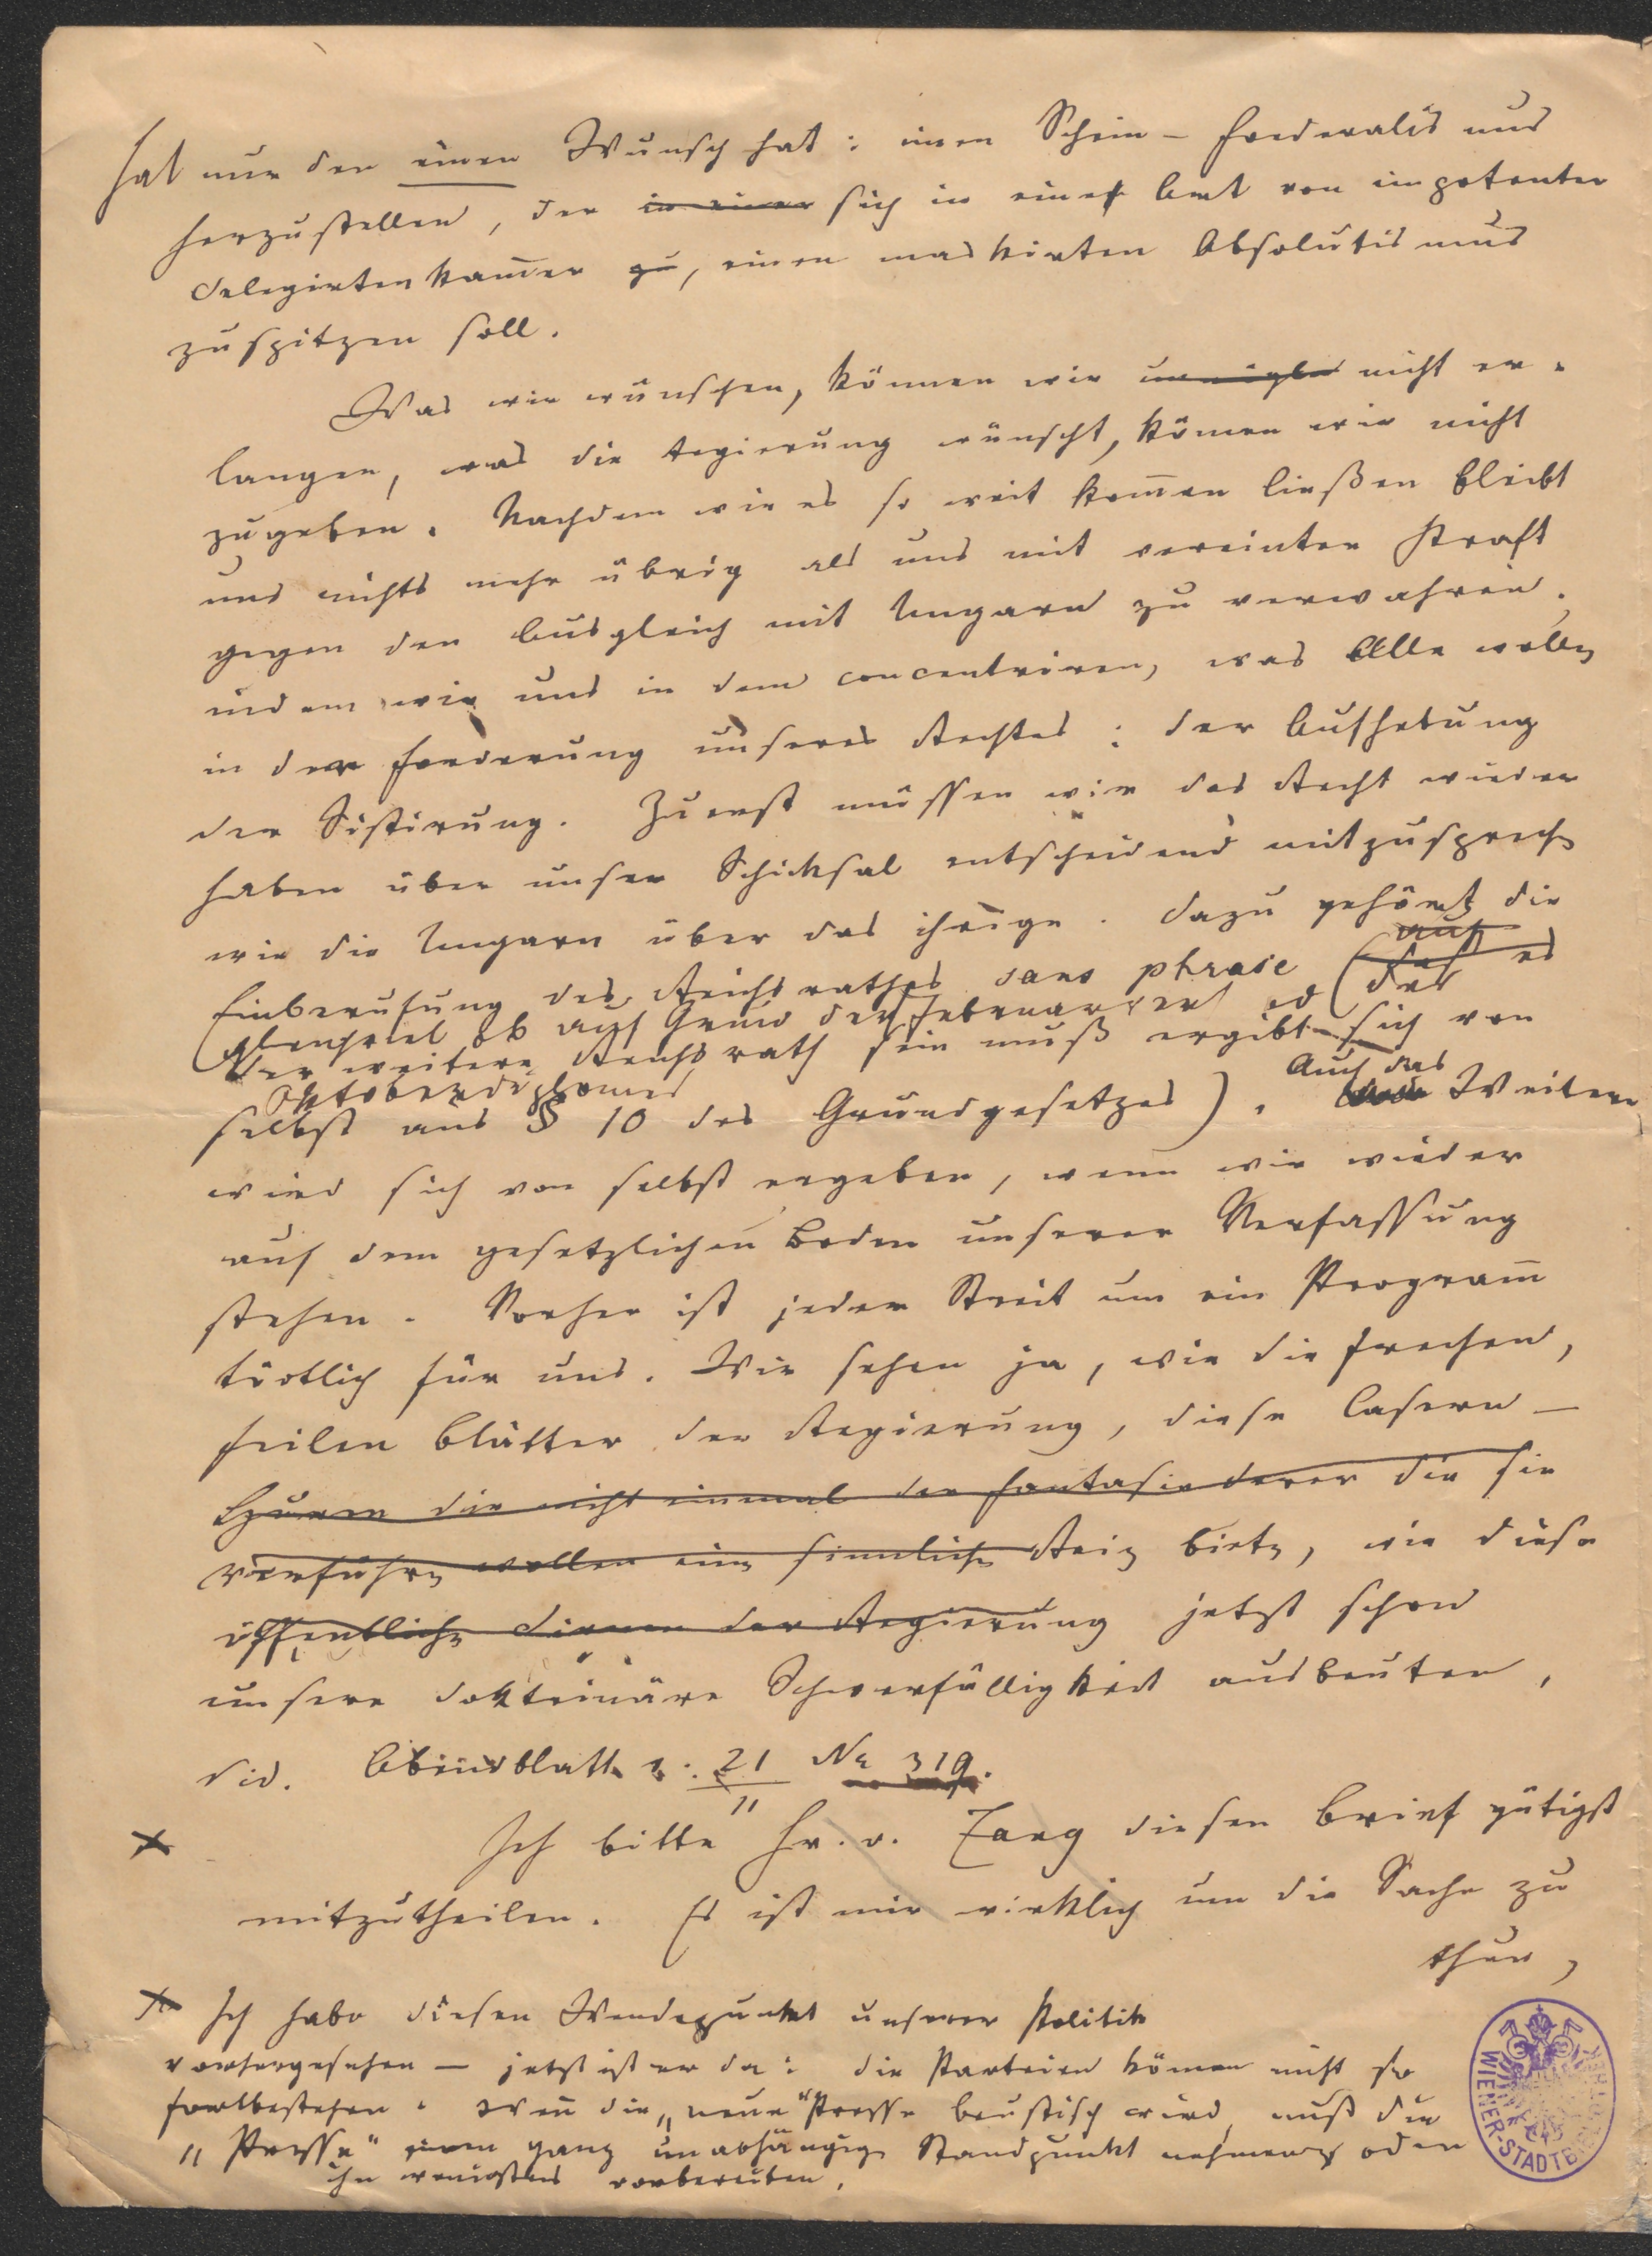 hat nur den einen Wunsch hat: einen Schein-Foederalismus
herzustellen, der in einer sich in einer Art von impotenter
Delegirtenkam̄er zu, einen maskirten Absolutismus
zuspitzen soll.
Was wir wünschen, können wir nicht er-
langen, was die Regierung wünscht, können wir nicht
zugeben. Nachdem wir es so weit kom̄en ließen bleibt
uns nichts mehr übrig als uns mit vereinter Kraft
gegen den Ausgleich mit Ungarn zu verwahren.
indem wir uns in dem concentriren, was Alle wollen
in der Forderung unseres Rechtes: der Aufhebung
der Sistirung. Zuerst müssen wir das Recht wieder
haben über unser Schicksal entscheidend mitzusprechen
wie die Ungarn über das ihrige. Dazu gehört die
Einberufung des Reichsrathes sans phrase (daß es
gleichviel ob auf Grund der Februarverf od des
der weitere Reichsrath sein muß ergibt sich von
Oktoberdiplomes
selbst aus § 10 des Grundgesetzes). Auch das Weitere
wird sich von selbst ergeben, wenn wir wieder
auf dem gesetzlichen Boden unserer Verfassung
stehen. Vorher ist jeder Streit um ein Program̄
tödtlich für uns. Wir sehen ja, wie die frechen,
feilen Blätter der Regierung, diese Casern-
Huren die nicht einmal der Fantasie derer die sie
verführen wollen einen sinnlichen Reiz bieten, wie diese
öffentlichen Dirnen der Regierung jetzt schon
unsere doktrinäre Schwerfälligkeit ausbeuten,
vid. Abendblatt v. 21/11 No 319.
x Ich bitte Hr. v. Zang diesen Brief gütigst
mitzutheilen. Es ist mir wirklich um die Sache zu
thun,
x Ich habe diesen Wendepunkt unserer Politik
vorhergesehen — jetzt ist er da: die Parteien können nicht so
fortbestehen. Wen̄ die „neue" Presse beustisch wird, muß die
„Presse" einen ganz unabhängigen Standpunkt nehmen oder
ihn wenigstens vorbereiten.
WIENER-STADTBIBLIOTHEK